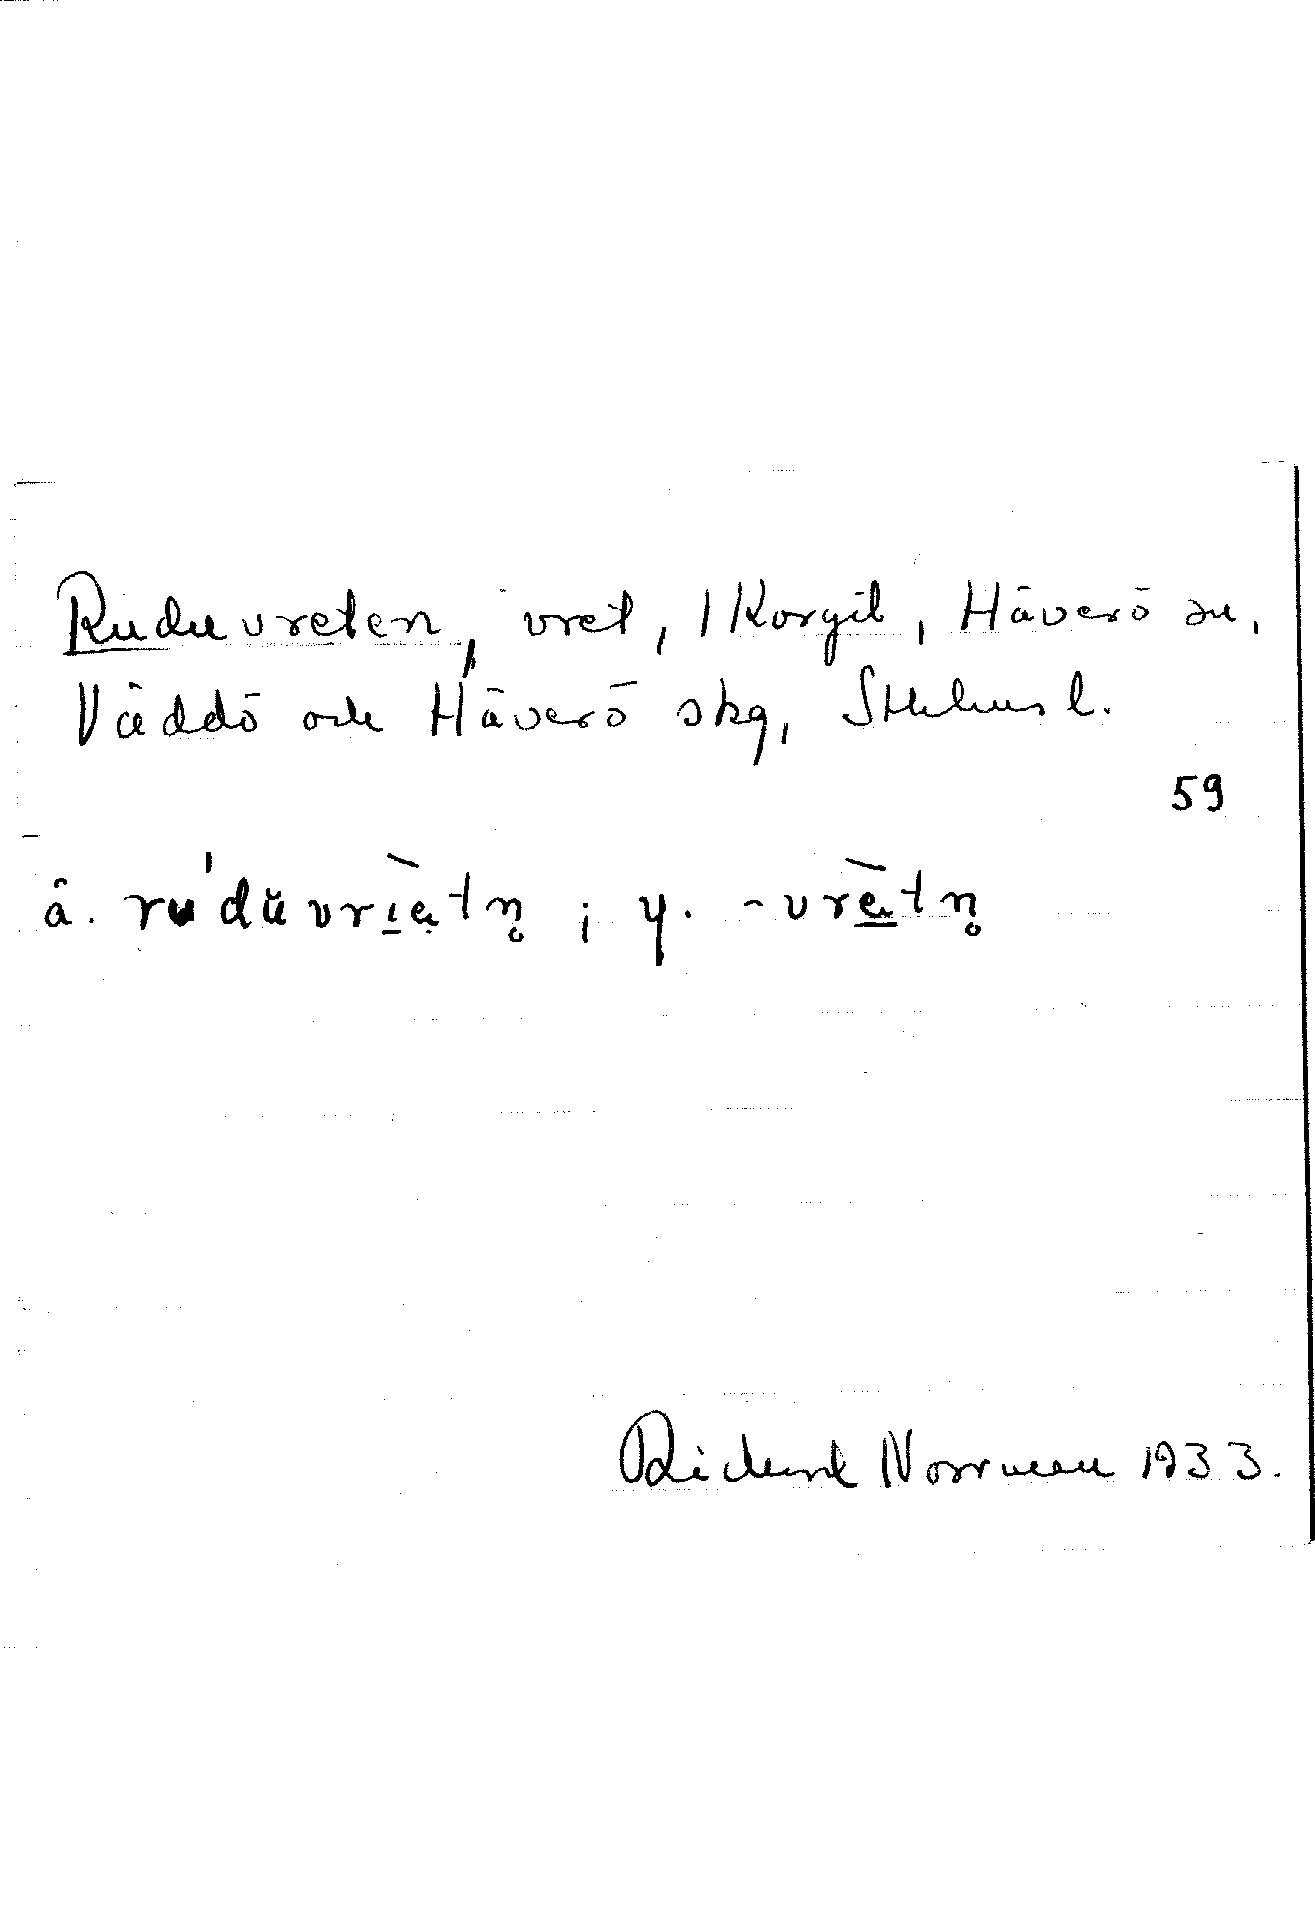 Ruduvreten, vret, 1 Korgil, Häverö sn,
Väddö och Häverö skg, Sthlms l.
59
ä. rúdŭvrìe̯tn̥ ; y. -vrètn̥
Richard Norrman 1933.